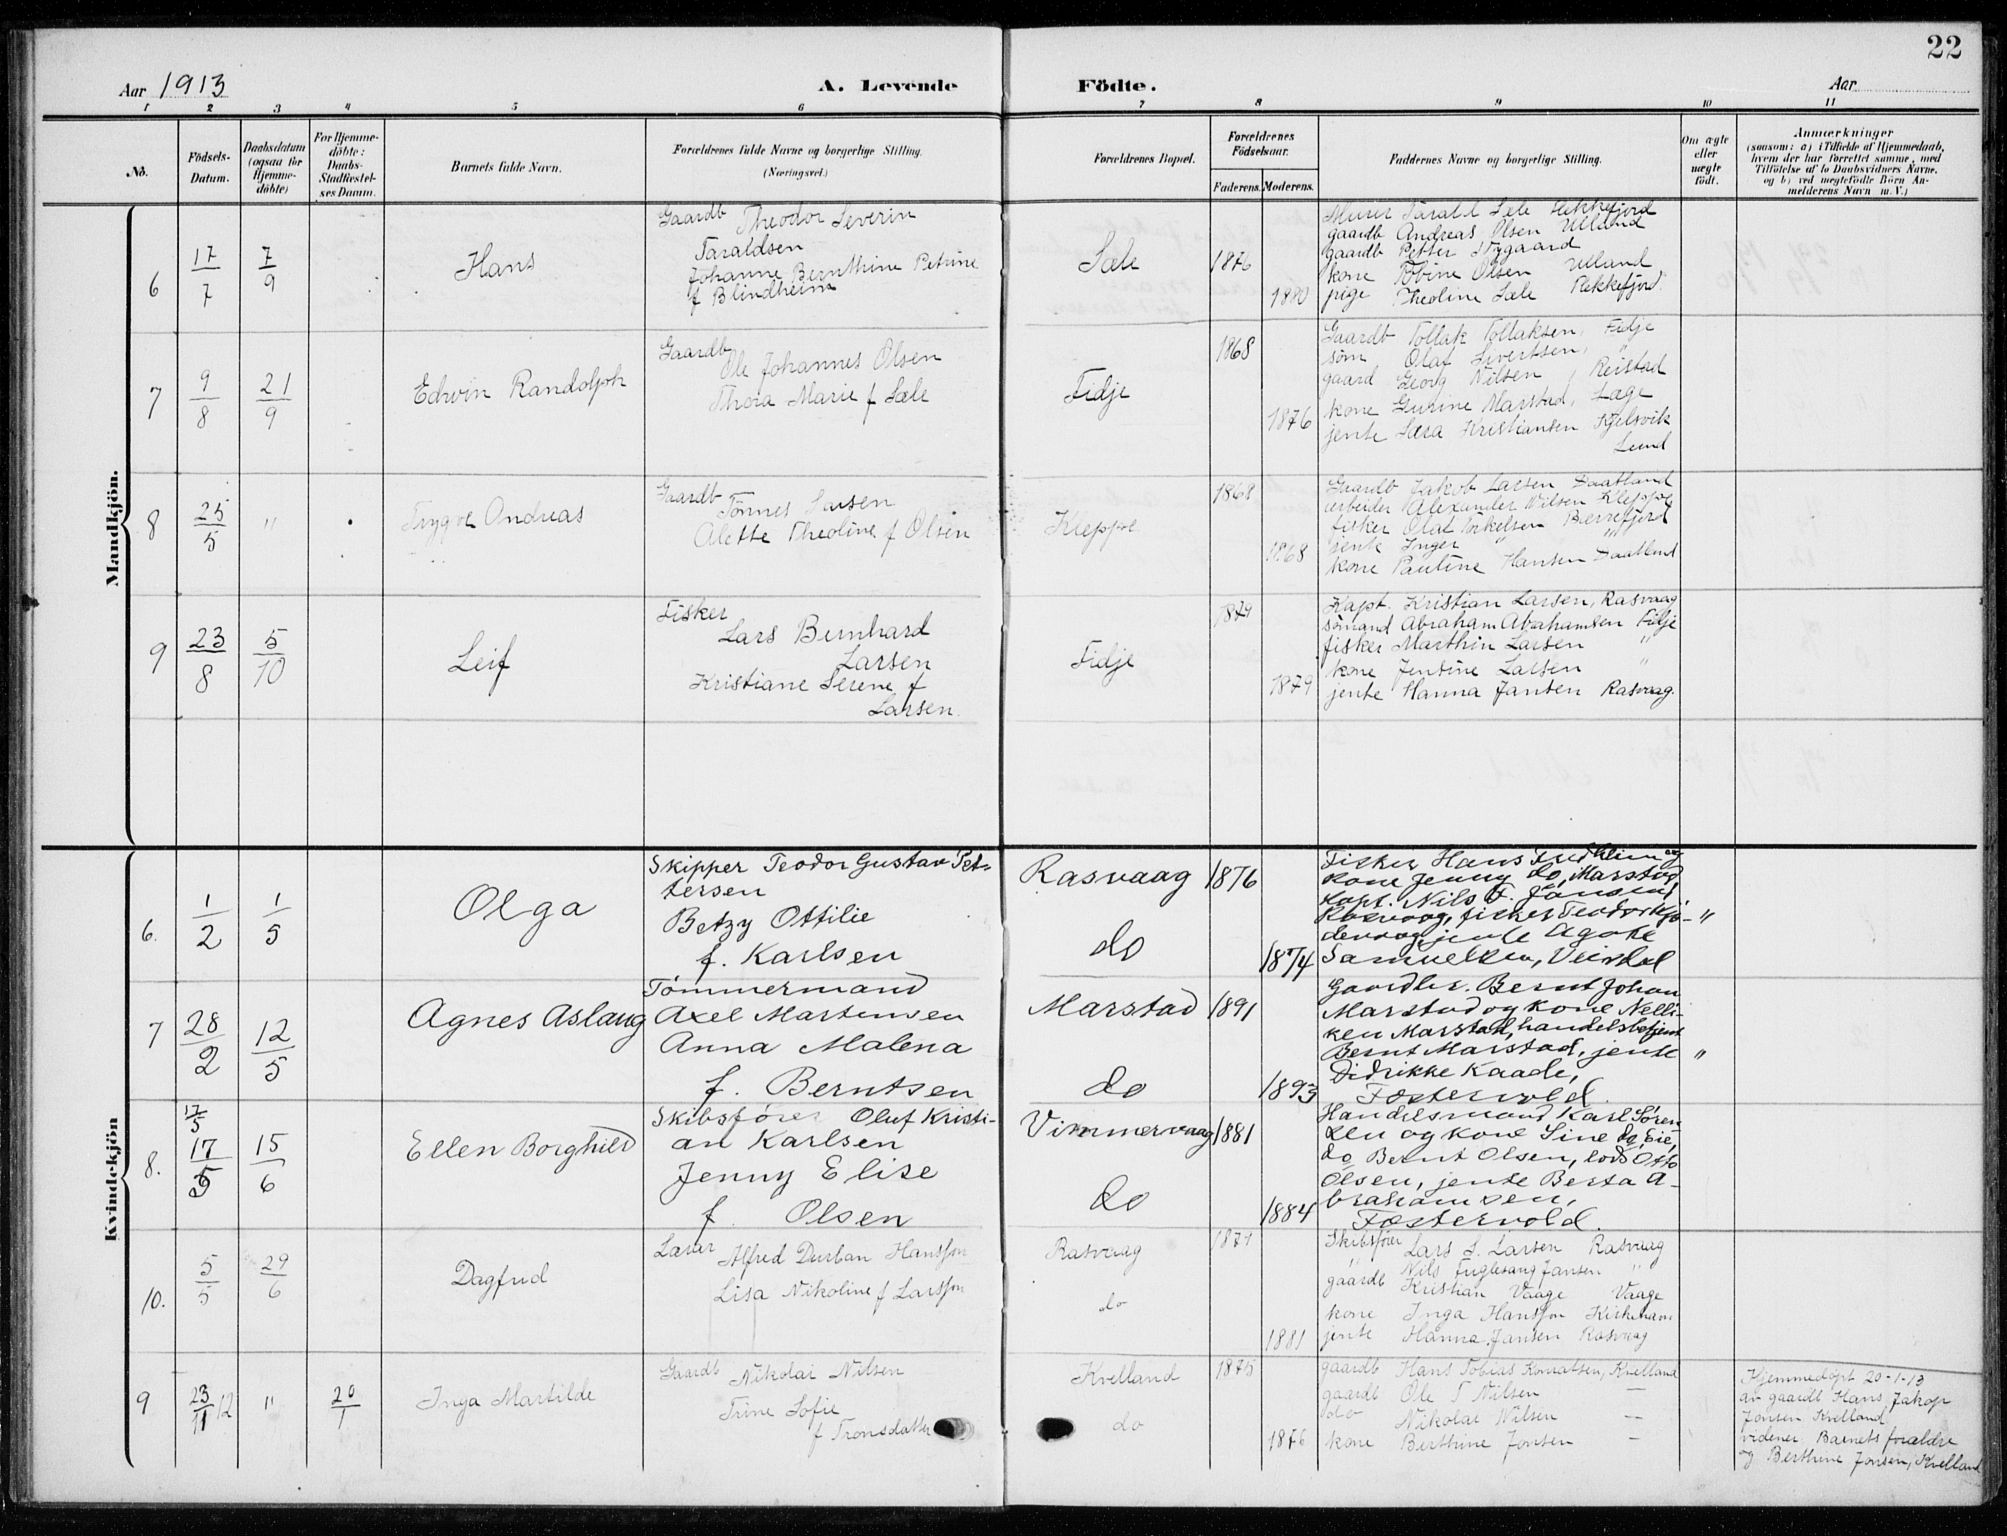 22
Aar 1913
A. Levende Födte.
Aar
1 2 3 4 5 6 7 8 9 10 11
No.
Födsels-Datum.
Daabsdatum (ogsaa for Hjemme-döbte)
For Hjemme-döbte: Daabs-Stadfæstel-ses Datum.
Barnets fulde Navn.
Forældrenes fulde Navne og borgerlige Stilling. (Næringsvei.)
Forældrenes Bopæl.
Forældrenes Födselsaar.
Faderens. Moderens.
Faddernes Navne og borgerlige Stilling.
Om ægte eller uægte födt.
Anmærkninger
(saasom: a) i Tilfælde af Hjemmedaab, hvem der har forrettet samme, med Tilföielse af to Daabsvidners Navne, og b) ved uegtefödte Börn An-melderens Navn m. V.)
Mandkjön.
6 17/7 7/9 Hans
Gaardb Theodor Severin
Taraldsen
Johanne Bernthine Petrine
f Blindheim
Sæle 1876 1880
Murer Tarald Sæle Rekkefjord
gaardb Andreas Olsen Ulland
gaardb Petter Nygaard
kone Tobine Olsen Ulland
pige Theoline Sæle Rekkefjord
7 9/8 21/9 Edwin Randolph
Gaardb
Ole Johannes Olsen
Thora Marie f Sæle
Fidje 1868 1876
Gaardb Tollak Tollaksen, Fidje
söm Olaf Sivertsen, "
gaard Georg Nilsen, Reistad
kone Gurine Marstad, Læge
jente Sara Kristiansen Kjelsvik
Lund
8 25/5 " Trygve Andreas
Gaardb Tönnes Larsen
Alette Theoline f Olsen
Kleppe 1868 1868
Gaardb Jakob Larsen Daatland
arbeider Alexander Nilsen Kleppe
fisker Olai Torkelsen Berrefjord
jente Inger " "
kone Pauline Hansen Daatland
9 23/8 5/10 Leif
Fisker
Lars Bernhard
Larsen
Kristiane Serene f
Larsen.
Fidje 1879 1879
Kapt. Kristian Larsen, Rasvaag
sömand Abraham Abrahamsen Fidje
fisker Marthin Larsen "
kone Jentine Larsen "
jente Hanna Jansen Rasvaag.
Kvindekjön
6. 1/2 1/5 Olga
Skipper Teodor Gustav Pet-
tersen
Betzy Ottilie
f. Karlsen
Rasvaag 1876
do 1874
Fisker Hans Fredheim og
kone Jenny do, Marstad
kapt. Nils F. Jansen,
Rasvaag, fisker Teodor
jente Agate
Samuelsen, Veisdal
"
7 28/2 12/5 Agnes Aslaug
Tømmermand
Axel Martinsen
Anna Malena
f. Berntsen
Marstad 1891
do 1893
Gaardbr. Bernt Johan
Marstad og kone Nelli-
ken Marstad, handelsbetjent
Bernt Marstad, jente "
Didrikke Kaade,
Fostervold.
8. 17/5 17/5 15/6 Ellen Borghild
Skibsfører Oluf Kristi-
an Karlsen
Jenny Elise
f. Olsen
Vimmervaag 1881
do 1884
Handelsmand Karl Søren
sen og kone Sine do, Eie,
do Bernt Olsen, lods Otto
Olsen, jente Berta A-
brahamsen,
Fostervold.
10. 5/5 29/6 Dagfrid
Lærer Alfred Durban Hansson
Lisa Nikoline f Larsson
Rasvaag 1871
do 1881
Skibsfører Lars S. Larsen Rasvaag
" Nils Fuglesang Jansen "
gaardb Kristian Vaage Vaage
kone Inga Hansson Kirkehavn
jente Hanna Jansen Rasvaag
9 23/11 12 " 20/1 Inga Martilde
Gaardb Nikolai Nilsen
Trine Sofie
f Tronsdatter
Kvelland 1875
do 1876
gaardb Hans Tobias Konratsen, Kvelland
gaardb Ole T Nilsen —
do Nikolai Nilsen —
kone Berthine Jonsen —
Hjemmedöpt 20-1-13
av gaardb Hans Jakop
Jonsen Kvelland
vidner Barnets forældre
og Berthine Jonsen, Kvelland